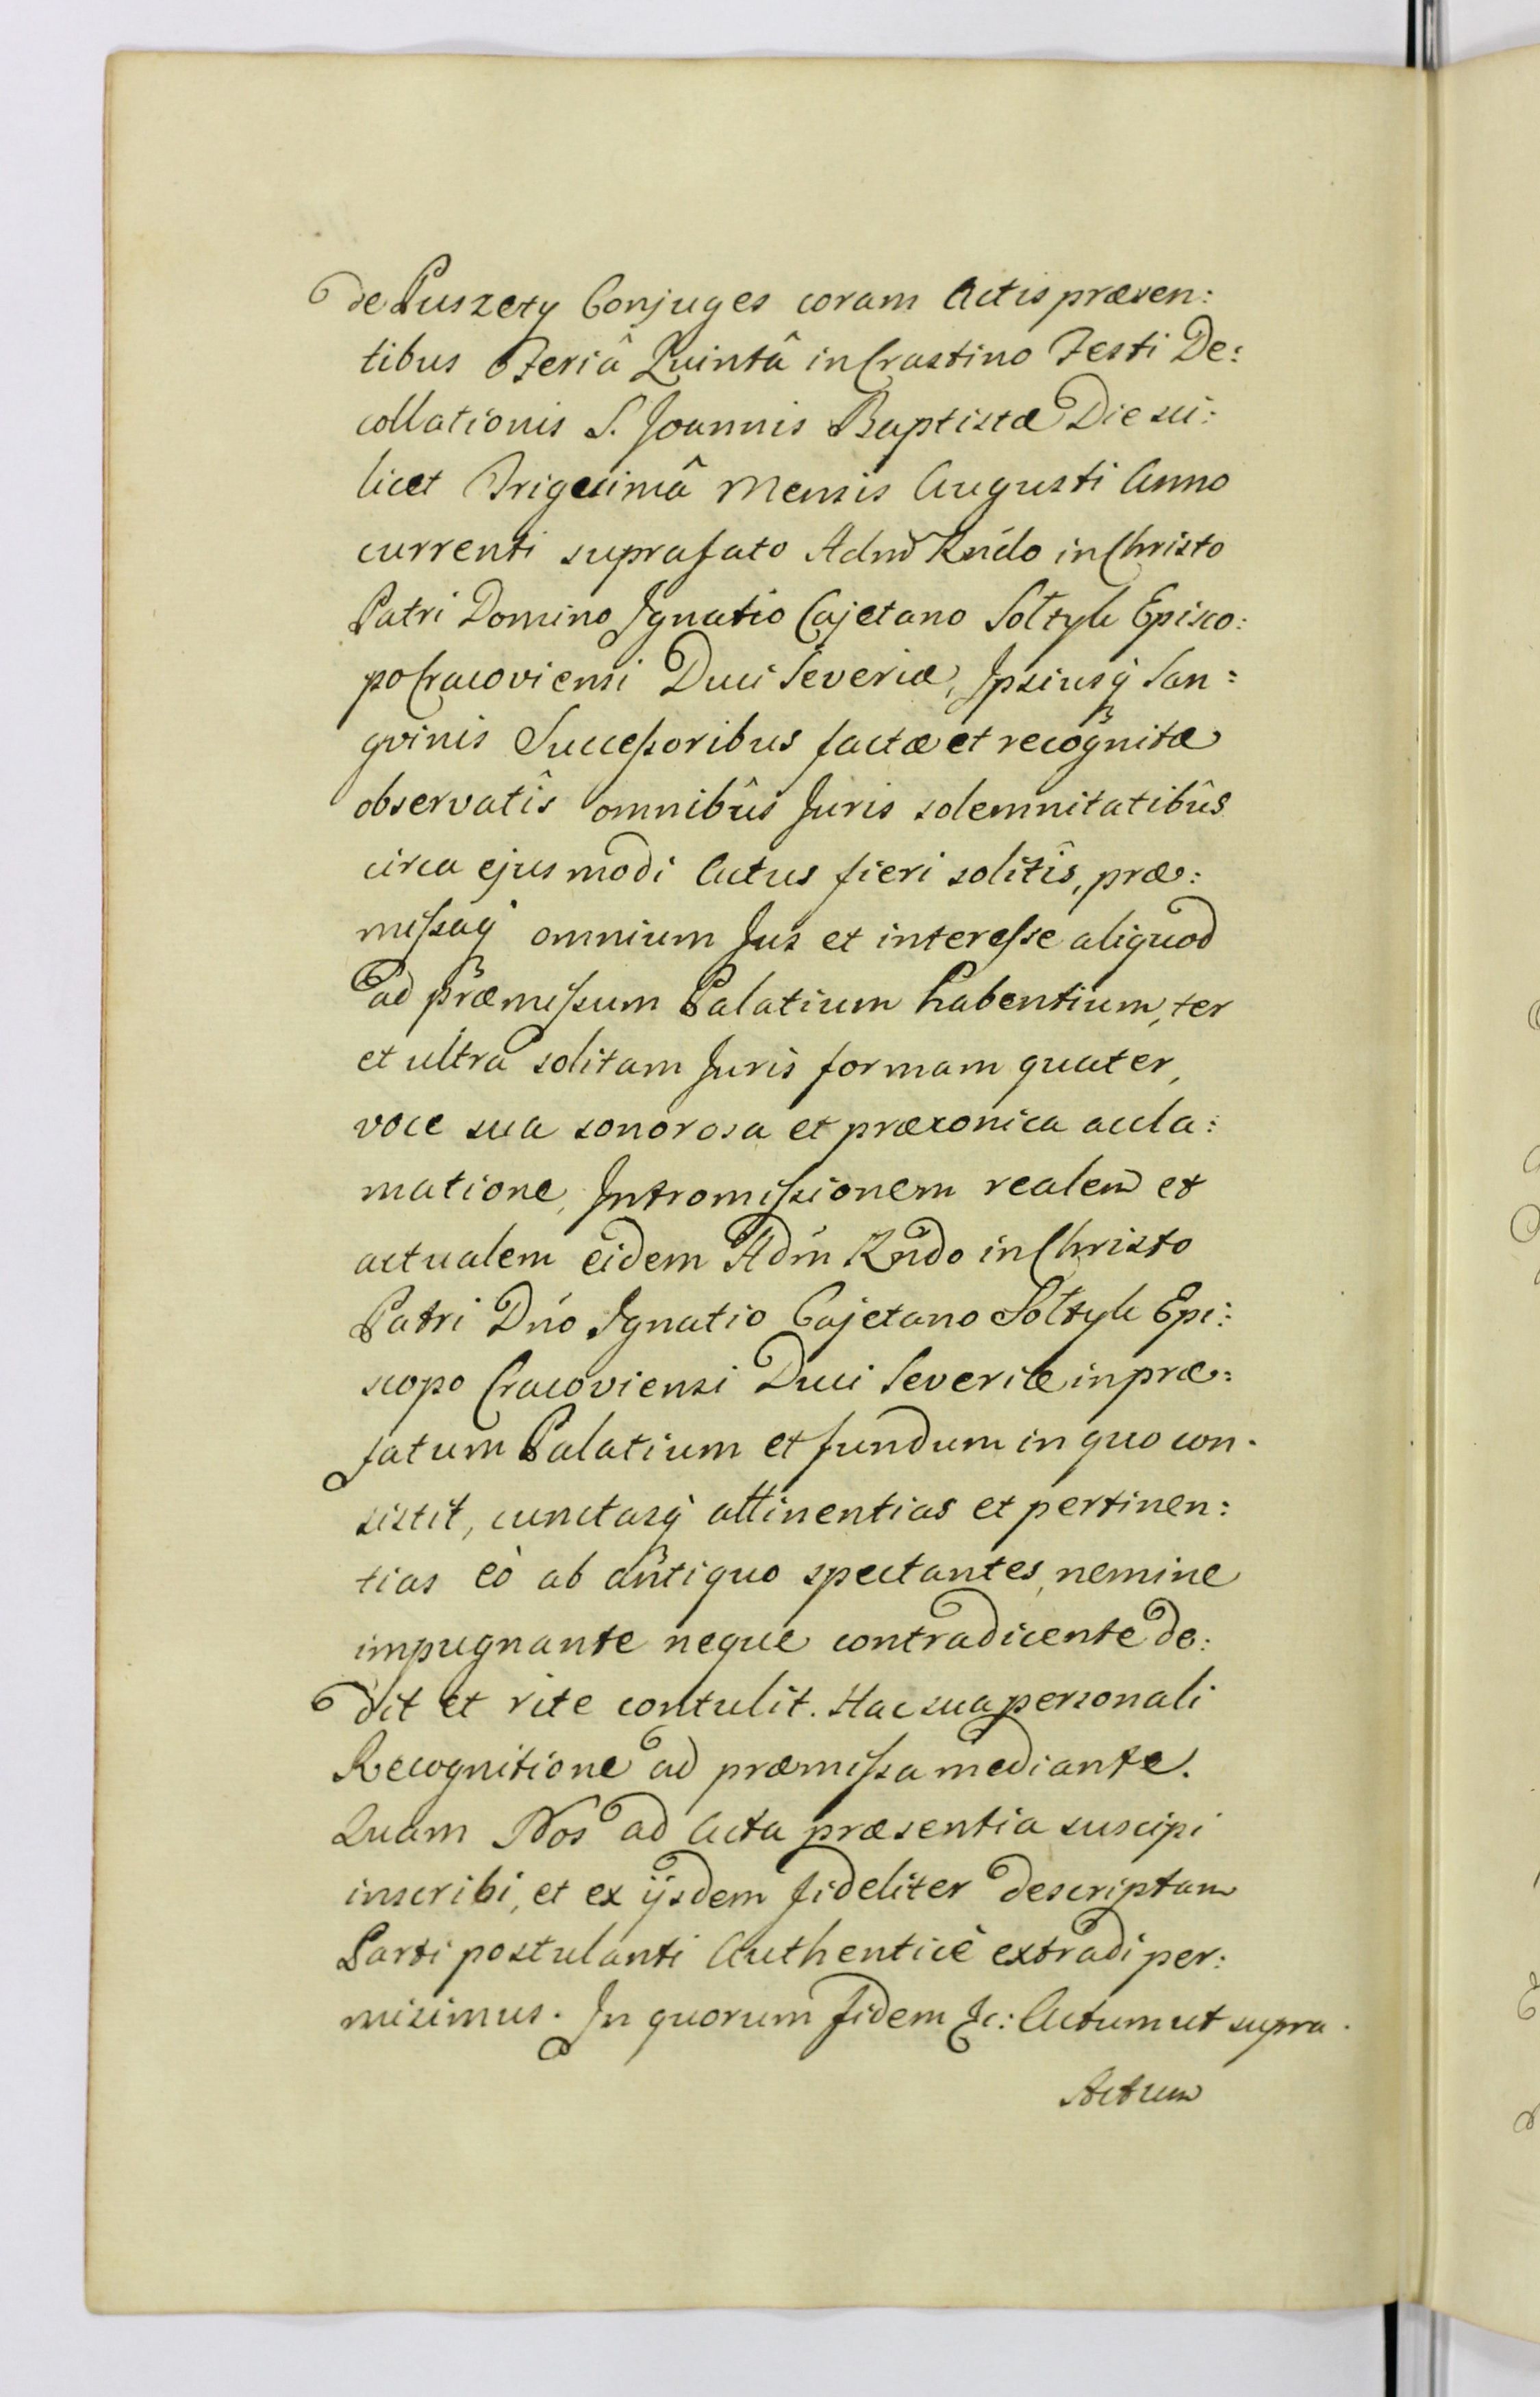 de Puszety Conjuges coram Actis præsen:
tibus Feriâ Quintâ in Crastino Festi De:
collationis S. Joannis Baptistæ Die sci:
licet Trigesimâ Mensis Augusti Anno
currenti suprafato Adm̃ Rñdo in Christo
Patri Domino Ignatio Cajetano Sołtyk Episco:
po Cracoviensi Duci Severiæ, Ipsiusq́ San:
gvinis Successoribus factæ et recognitæ
observatîs omnibûs Juris solemnitatibûs
circa ejusmodi Actus fieri solitîs, præ:
missaq́ omnium Jus et interesse aliquod
ad præmissum Palatium habentium, ter
et ultra solitam Juris formam quater,
voce sua sonorosa et præconica accla:
matione, Intromissionem realem et
actualem eidem Adm̃ Rñdo in Christo
Patri Dño Ignatio Cajetano Sołtyk Epi:
scopo Cracoviensi Duci Severiæ in præ:
fatum Palatium et fundum in quo con:
sistit, cunctasq́ attinentias et pertinen:
tias eò ab antiquo spectantes, nemine
impugnante neque contradicente de:
dit et rite contulit. Hac sua personali
Recognitione ad præmissa mediante.
Quam Nos ad Acta præsentia suscipi
inscribi, et ex ijsdem fideliter descriptam
Parti postulanti Authenticè extradi per:
misimus. In quorum fidem &c: Actum ut supra.
Actum